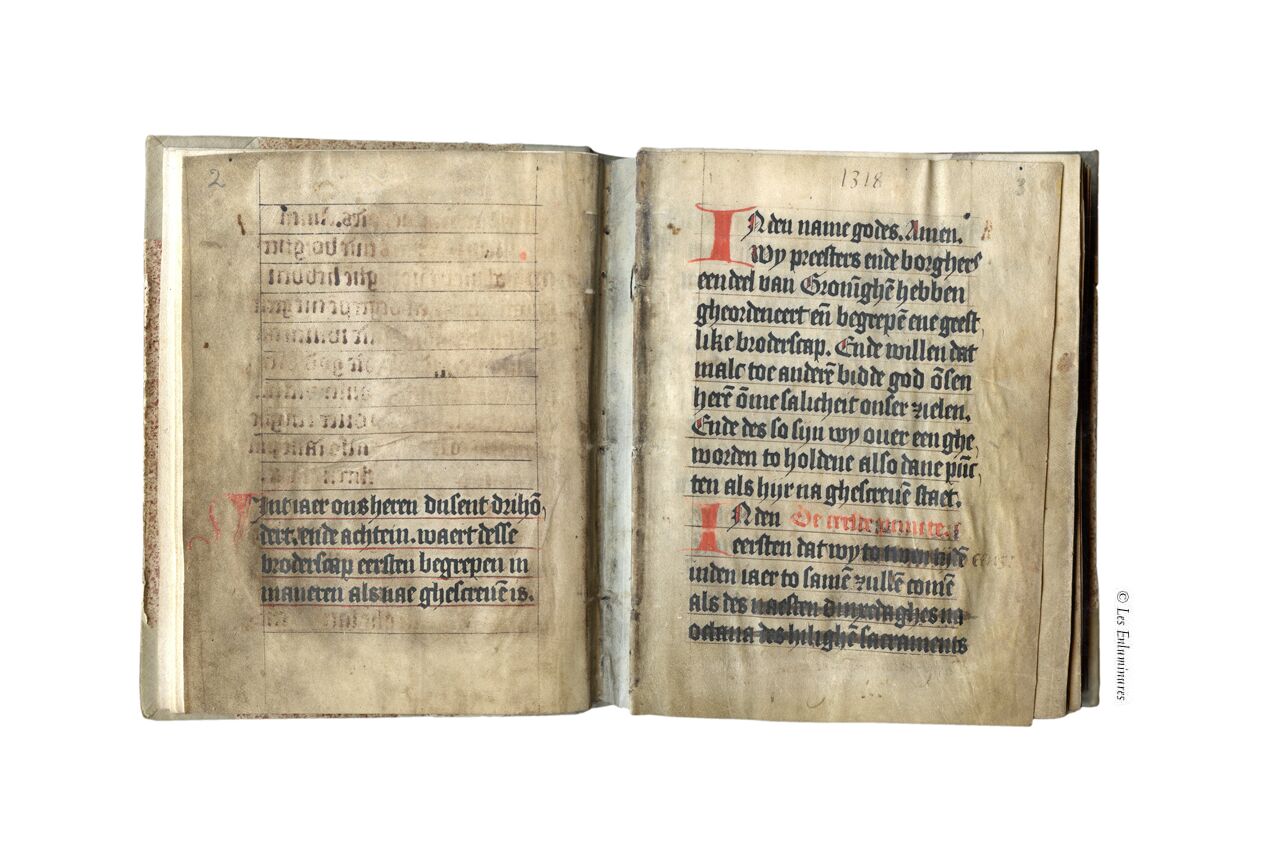 2
Int iaer ons heren dusent drihō
dert. ende achtein. waert desse
broderscap eersten begrepen in
maneren als nae ghescreuē is.
1318
3
IN den name godes. Amen.
Wy preesters ende borghers
een deel van Gronīghē hebben
gheordeneert eñ begrepē ene geest
like broderscap. Ende willen dat
malc toe anderē bidde god ōsen
herē ōme salicheit onser zielen.
Ende des so sijn wy ouer een ghe
worden to holdene also dane pūc
ten als hijr na ghescreuē staet.
IN den De eerste puncte.
eersten dat wy to
inden iaer to samē zullē comē
als des naesten dinxedaghes na
octaua des hilighē sacraments
© Les Enluminures